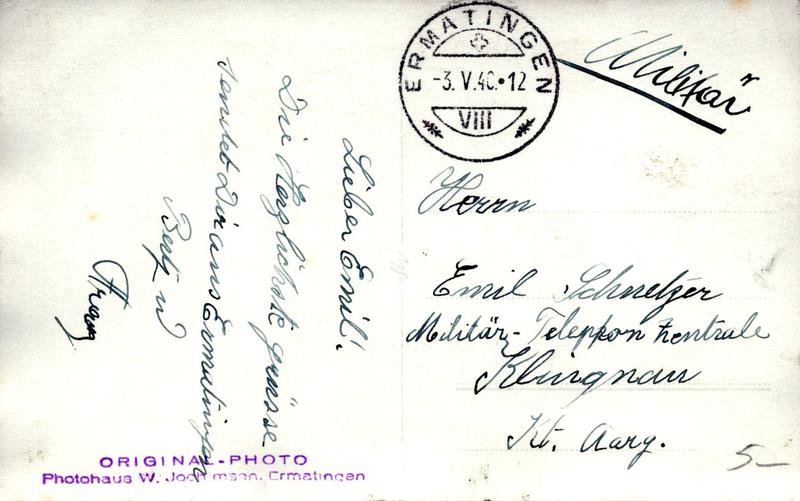 Lieber Emil!
Die Herzlichste grüsse
sendet Dir aus Ermatingen
ERMATINGEN
-3.V.40.•12
VIII
Militär
Herrn
Emil Schnetzer
Militär-Telephon Zentrale
Klingnau
Kt. Aarg.
5.–
ORIGINAL-PHOTO
Photohaus W. Ermatingen